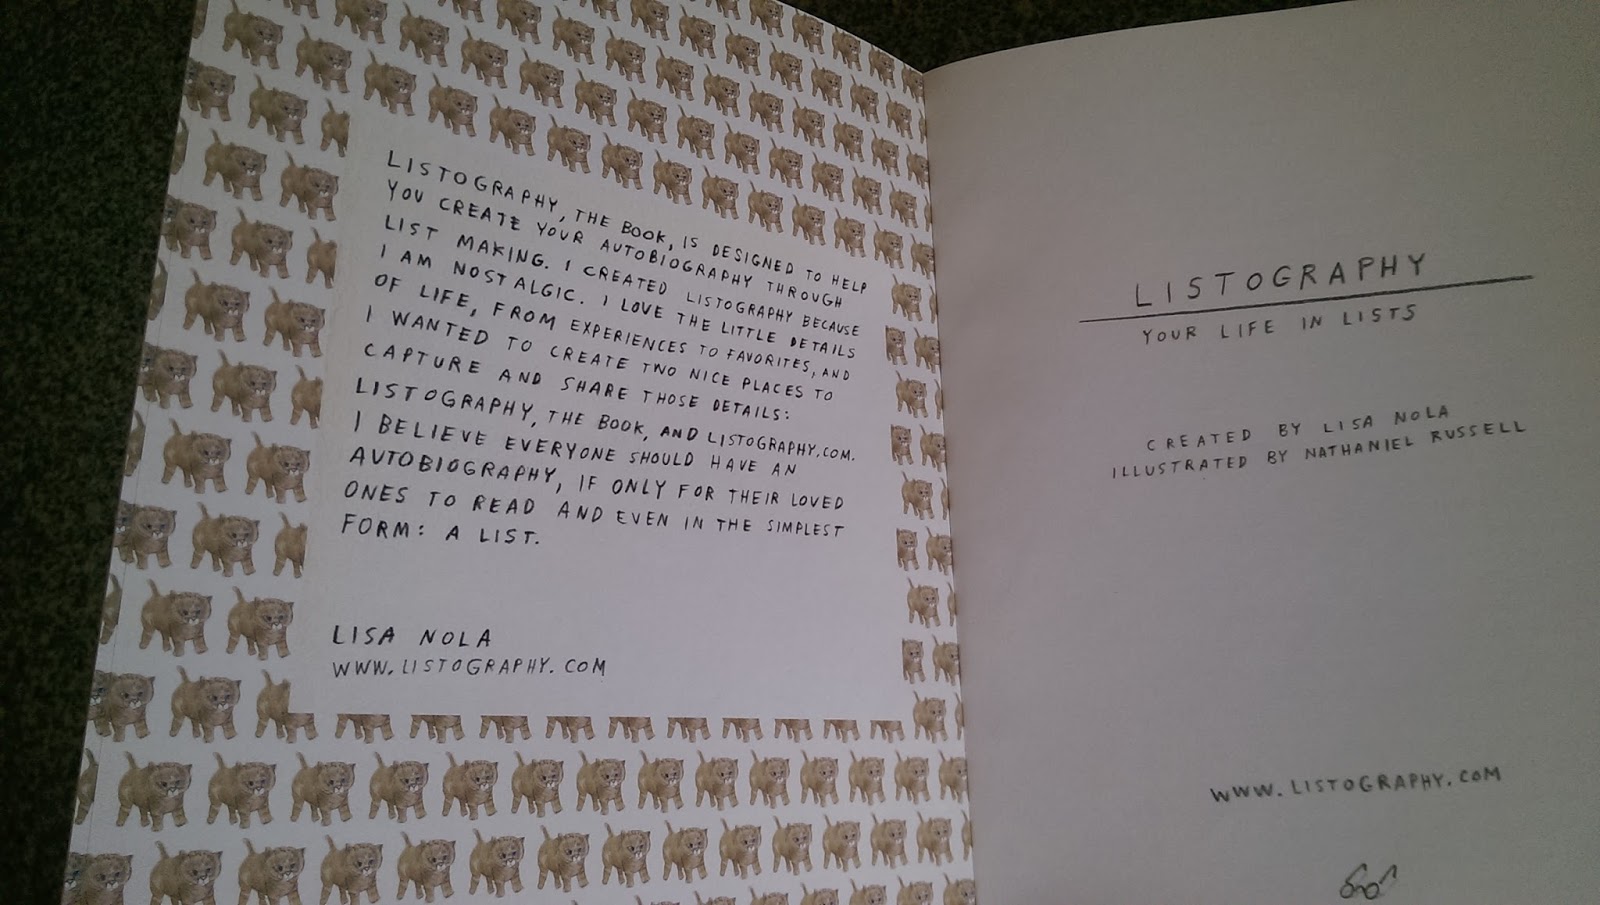 LISTOGRAPHY, THE BOOK, IS DESIGNED TO HELP
YOU CREATE YOUR AUTOBIOGRAPHY THROUGH
LIST MAKING. I CREATED LISTOGRAPHY BECAUSE
I AM NOSTALGIC. I LOVE THE LITTLE DETAILS
OF LIFE, FROM EXPERIENCES TO FAVORITES, AND
I WANTED TO CREATE TWO NICE PLACES TO
CAPTURE AND SHARE THOSE DETAILS:
LISTOGRAPHY, THE BOOK, AND LISTOGRAPHY.COM.
I BELIEVE EVERYONE SHOULD HAVE AN
AUTOBIOGRAPHY, IF ONLY FOR THEIR LOVED
ONES TO READ AND EVEN IN THE SIMPLEST
FORM: A LIST.
LISA NOLA
WWW.LISTOGRAPHY.COM
LISTOGRAPHY
YOUR LIFE IN LISTS
CREATED BY LISA NOLA
ILLUSTRATED BY NATHANIEL RUSSELL
WWW.LISTOGRAPHY.COM